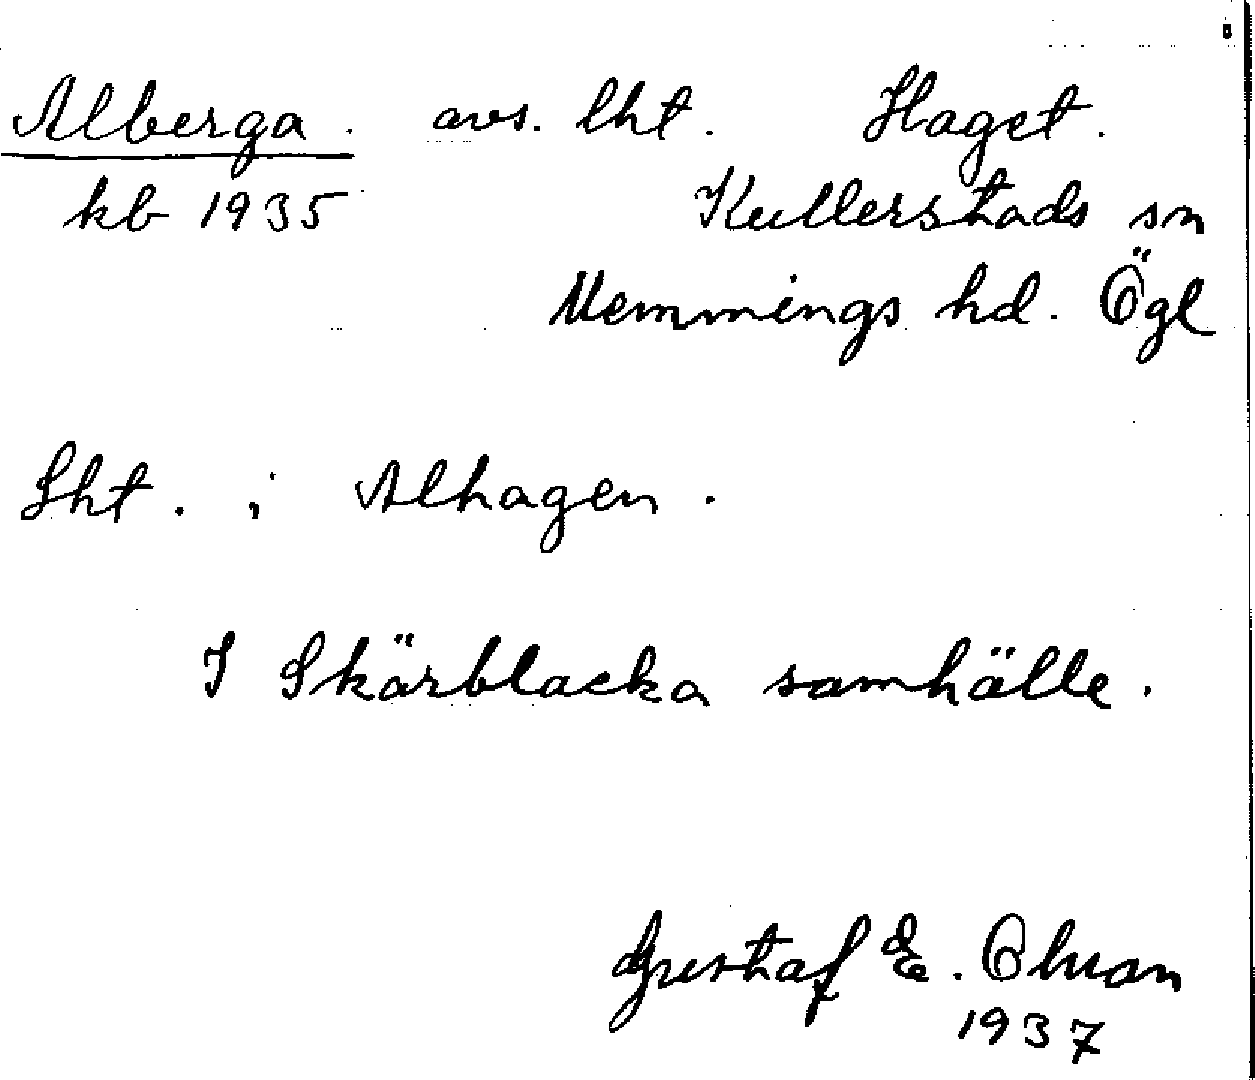 Alberga. avs. lht. Haget.
kb 1935 Kullerstads sn
Memmings hd. Ögl
Lht. i Alhagen.
I Skärblacka samhälle.
Gustaf E. Olsson
1937